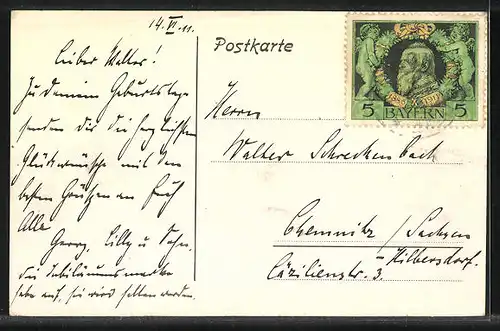 14. VI. 11.
Lieber Walter!
Zu deinem Geburtstage
senden dir die herzlichsten
Glückwünsche mit den
besten Grüssen an Euch
Alle
Georg, Lilly u. Sohn.
Die Jubiläumsmarke
hebe auf, sie wird selten werden.
Postkarte
1886 1911
5 BAYERN 5
Herrn
Walter Schreckenbach
Chemnitz / Sachsen
- Hilbersdorf.
Cäzilienstr. 3.